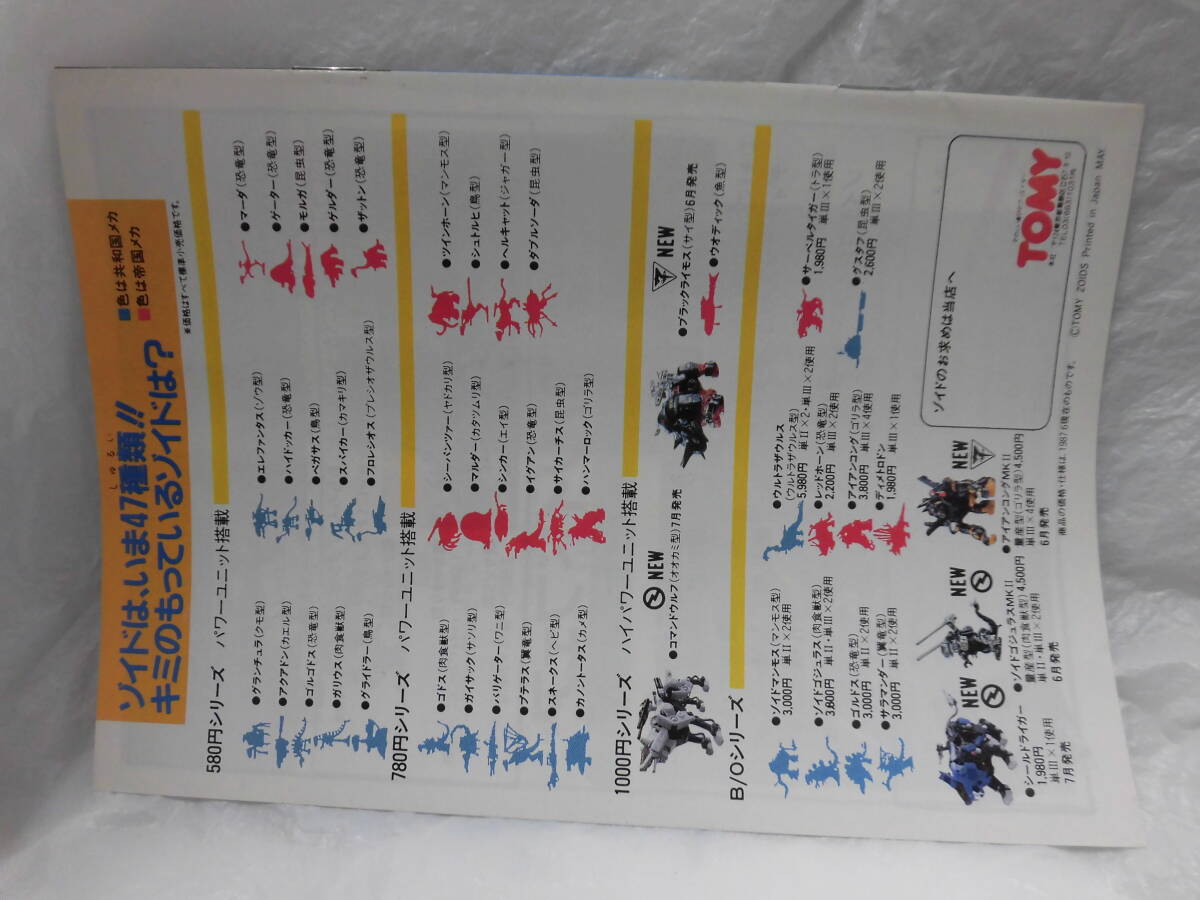 ソイドは、いま47種類!!
しゅるい
キミのもっているゾイドは?
■色は共和国メカ
■色は帝国メカ
※価格はすべて標準小売価格です。
580円シリーズ パワーユニット搭載
●グランチュラ(クモ型)
●アクアドン(カエル型)
●ゴルゴドス(恐竜型)
●ガリウス(肉食獣型)
●グライドラー(鳥型)
●エレファンタス(ゾウ型)
●ハイドッカー(恐竜型)
●ペガサロス(鳥型)
●スパイカー(カマキリ型)
●フロレシオス(プレシオザウルス型)
●マーダ(恐竜型)
●ゲーター(恐竜型)
●モルガ(昆虫型)
●ゲルダー(恐竜型)
●ザットン(恐竜型)
780円シリーズ パワーユニット搭載
●ゴドス(肉食獣型)
●ガイサック(サソリ型)
●バリゲーター(ワニ型)
●プテラス(翼竜型)
●スネークス(ヘビ型)
●カノントータス(カメ型)
●シーパンツァー(ヤドカリ型)
●マルダー(カタツムリ型)
●シンカー(エイ型)
●イグアン(恐竜型)
●サイカーチス(昆虫型)
●ハンマーロック(ゴリラ型)
●ツインホーン(マンモス型)
●シュトルヒ(鳥型)
●ヘルキャット(ジャガー型)
●ダブルソーダ(昆虫型)
1000円シリーズ ハイパワーユニット搭載
NEW
●コマンドウルフ(オオカミ型)7月発売
NEW
●ブラックライモス(サイ型)6月発売
●ウオディック(魚型)
B/Oシリーズ
●ゾイドマンモス(マンモス型)
3,000円 単II×2使用
●ゾイドゴジュラス(肉食獣型)
3,600円 単II×2使用
●ゴルドス(恐竜型)
3,000円 単II×2使用
●サラマンダー(翼竜型)
3,000円 単II×2使用
●ウルトラザウルス
(ウルトラザウルス型)
5,980円 単II×2・単III×2使用
●レッドホーン(恐竜型)
2,200円 単III×2使用
●アイアンコング(ゴリラ型)
3,800円 単III×4使用
●ディメトロドン
1,980円 単III×1使用
●サーベルタイガー(トラ型)
1,980円 単III×1使用
●グスタフ(昆虫型)
2,600円 単III×2使用
NEW
●シールドライガー
1,980円
単III×1使用
7月発売
NEW
●ゾイドゴジュラスMKII
量産型(肉食獣型)4,500円
単II・単III×2使用
6月発売
NEW
●アイアンコングMKII
量産型(ゴリラ型)4,500円
単III×4使用
6月発売
商品の価格・仕様は、1987.6現在のものです。
ゾイドのお求めは当店へ
TOMY
©TOMY ZOIDS Printed in Japan MAY